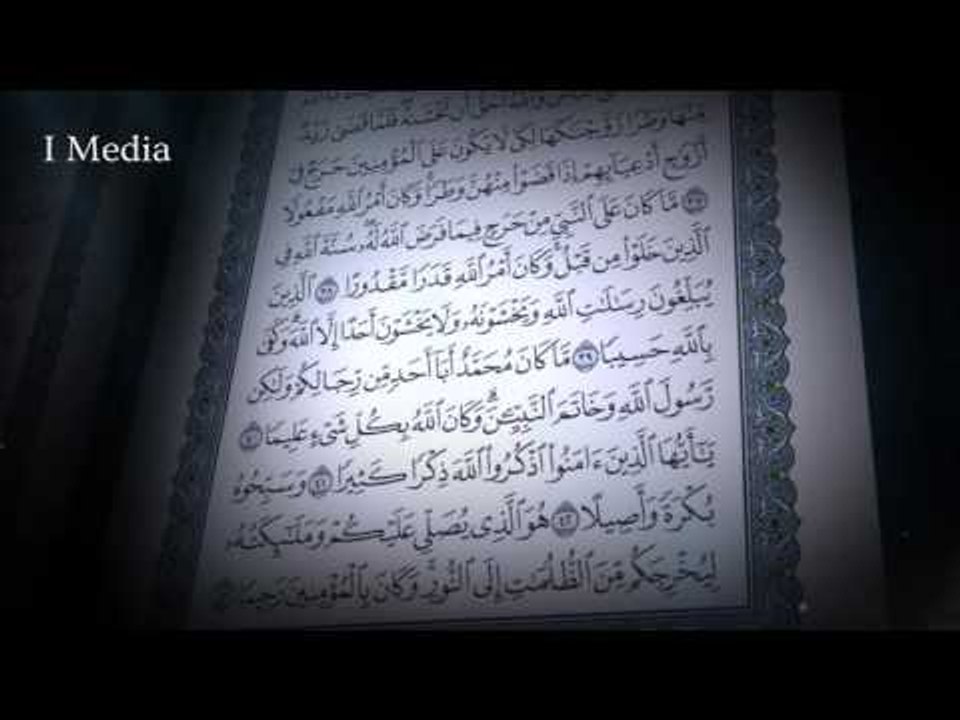 I Media
وَٱللَّهُ أَحَقُّ أَن تَخْشَىٰهُ فَلَمَّا قَضَىٰ زَيْدٌ
مِّنْهَا وَطَرًا زَوَّجْنَٰكَهَا لِكَىْ لَا يَكُونَ عَلَى ٱلْمُؤْمِنِينَ حَرَجٌ فِىٓ
أَزْوَٰجِ أَدْعِيَآئِهِمْ إِذَا قَضَوْا۟ مِنْهُنَّ وَطَرًا وَكَانَ أَمْرُ ٱللَّهِ مَفْعُولًا
٣٧ مَّا كَانَ عَلَى ٱلنَّبِىِّ مِنْ حَرَجٍ فِيمَا فَرَضَ ٱللَّهُ لَهُۥ سُنَّةَ ٱللَّهِ فِى
ٱلَّذِينَ خَلَوْا۟ مِن قَبْلُ وَكَانَ أَمْرُ ٱللَّهِ قَدَرًا مَّقْدُورًا ٣٨ ٱلَّذِينَ
يُبَلِّغُونَ رِسَٰلَٰتِ ٱللَّهِ وَيَخْشَوْنَهُۥ وَلَا يَخْشَوْنَ أَحَدًا إِلَّا ٱللَّهَ وَكَفَىٰ
بِٱللَّهِ حَسِيبًا ٣٩ مَّا كَانَ مُحَمَّدٌ أَبَآ أَحَدٍ مِّن رِّجَالِكُمْ وَلَٰكِن
رَّسُولَ ٱللَّهِ وَخَاتَمَ ٱلنَّبِيِّـۧنَ وَكَانَ ٱللَّهُ بِكُلِّ شَىْءٍ عَلِيمًا ٤٠
يَٰٓأَيُّهَا ٱلَّذِينَ ءَامَنُوا۟ ٱذْكُرُوا۟ ٱللَّهَ ذِكْرًا كَثِيرًا ٤١ وَسَبِّحُوهُ
بُكْرَةً وَأَصِيلًا ٤٢ هُوَ ٱلَّذِى يُصَلِّى عَلَيْكُمْ وَمَلَٰٓئِكَتُهُۥ
لِيُخْرِجَكُم مِّنَ ٱلظُّلُمَٰتِ إِلَى ٱلنُّورِ وَكَانَ بِٱلْمُؤْمِنِينَ رَحِيمًا ٤٣